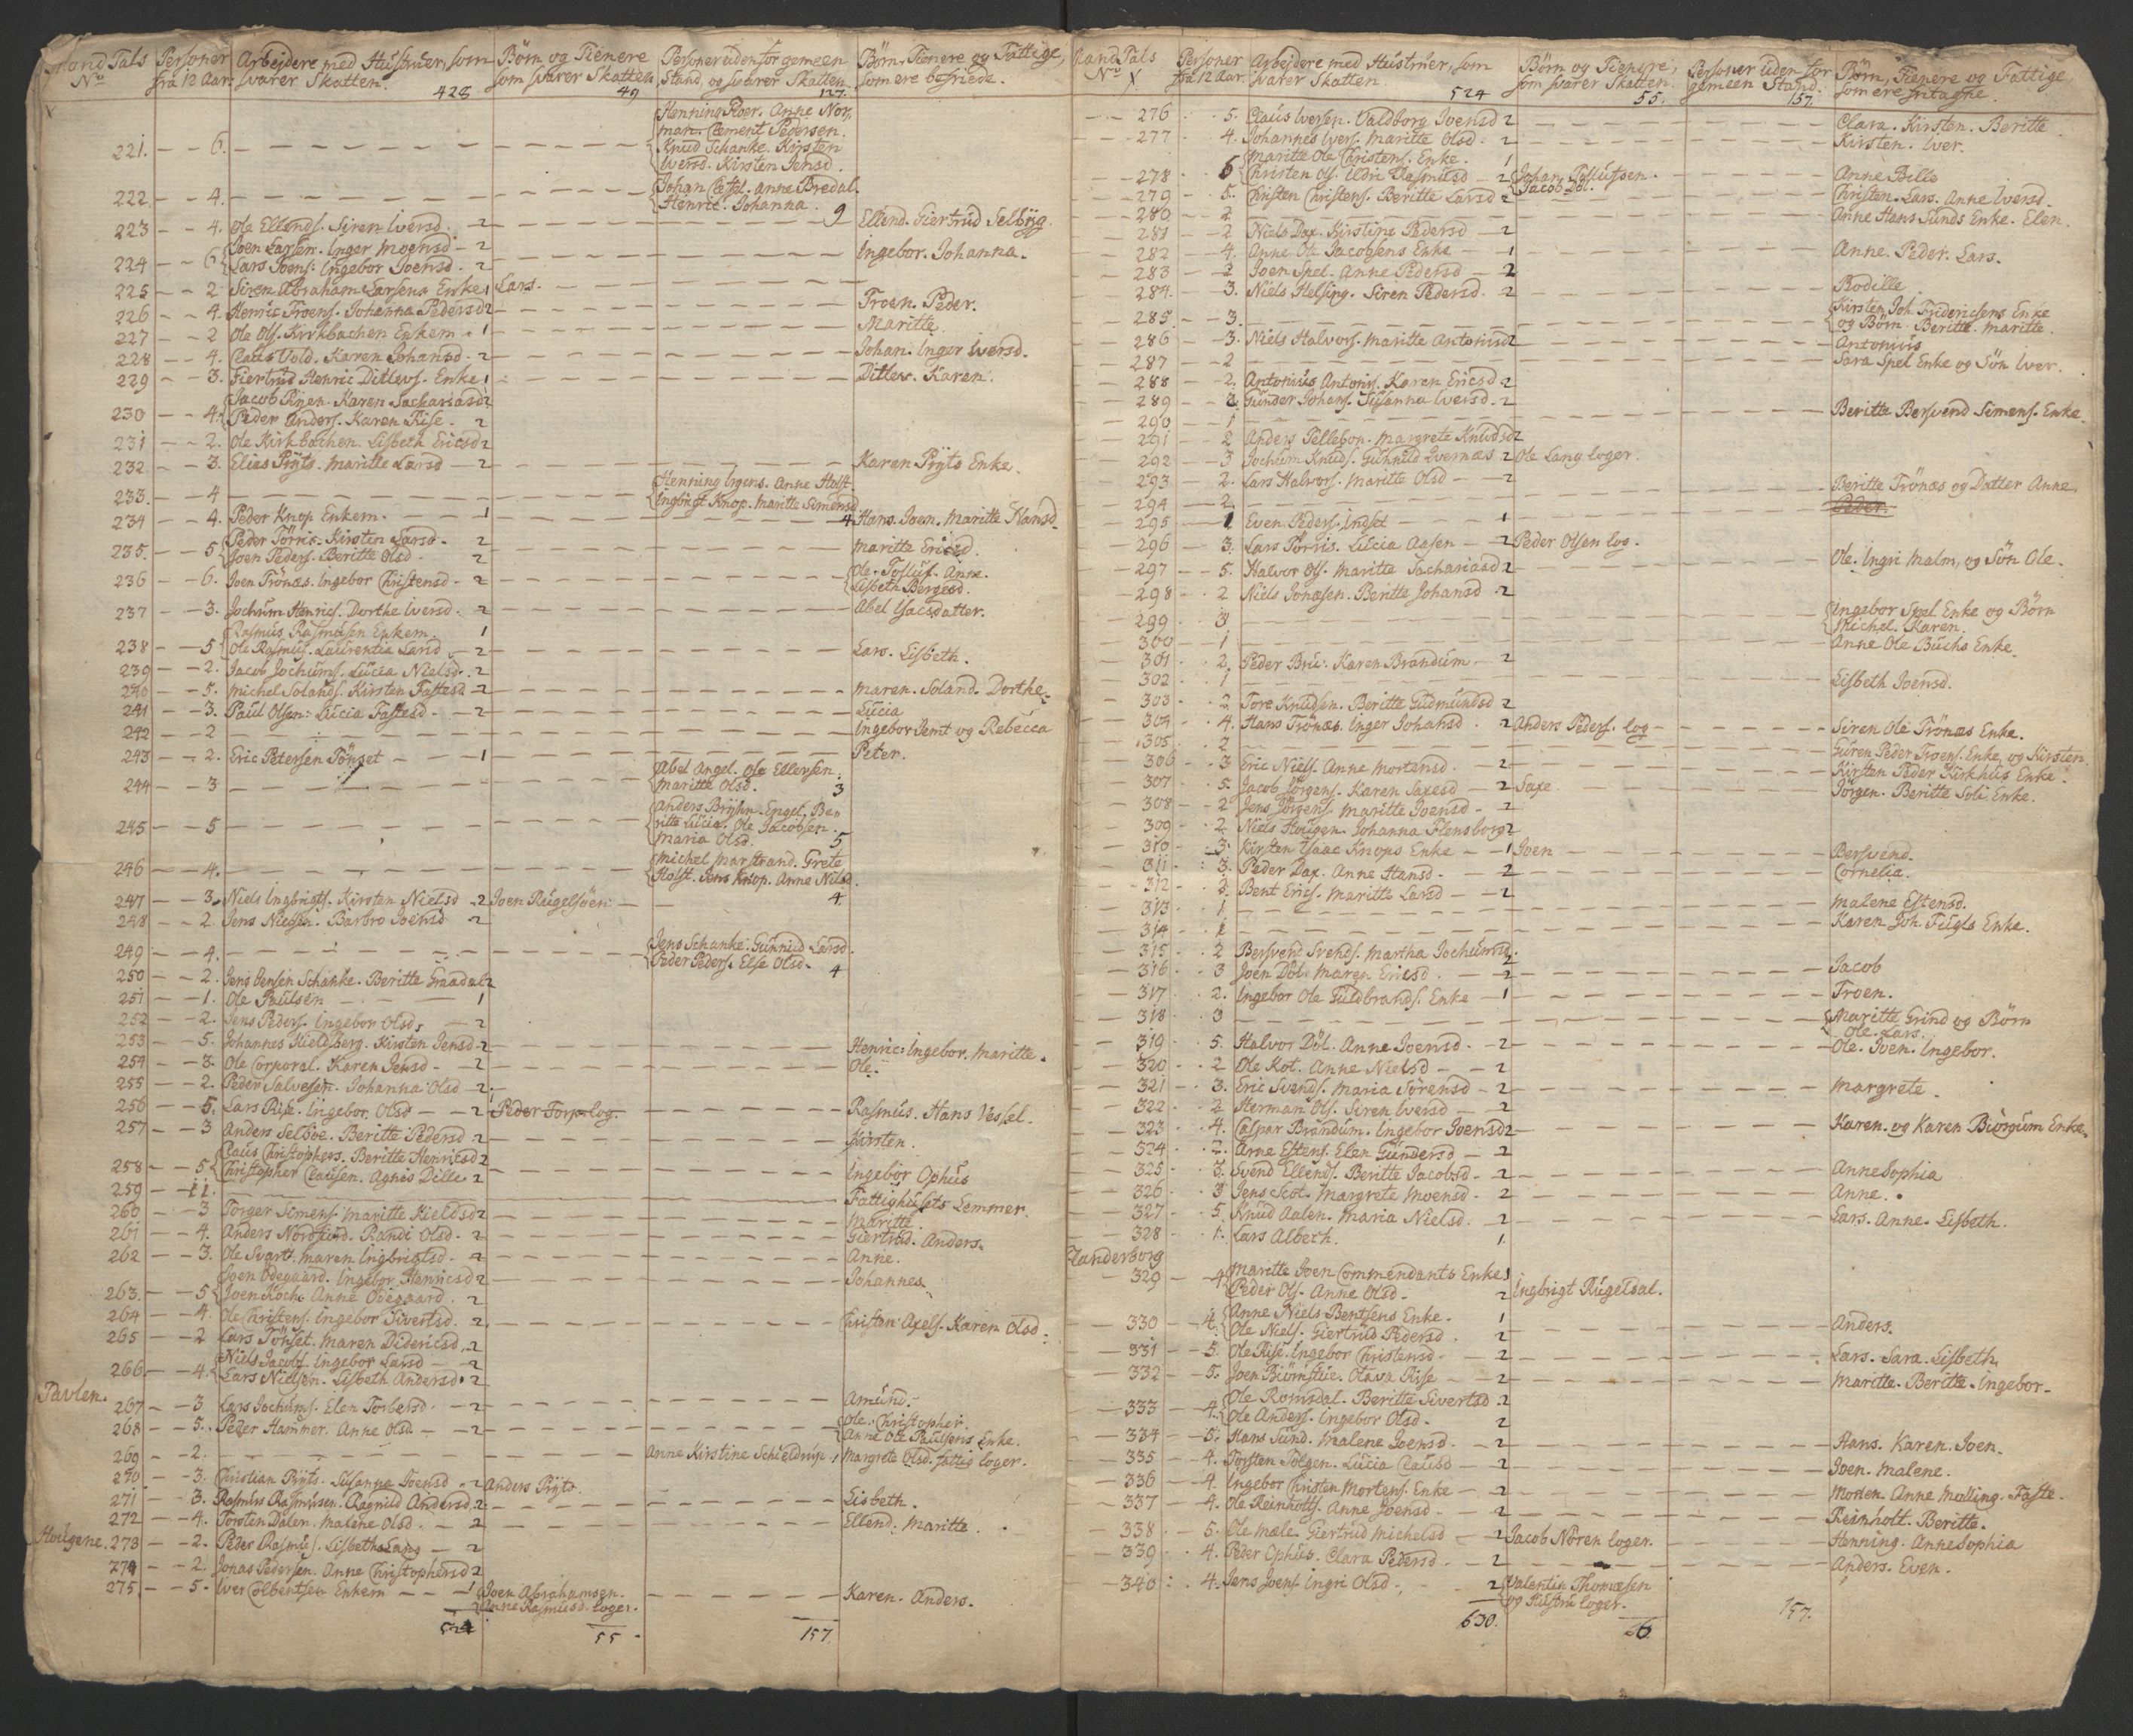 Mand Tals Personer Arbejdere med Hustruer, som Börn og Tienere Personer uden for gemeen Börn, Tienere og Fattige,
No fra 12 Aar. svarer Skatten. 428 som svarer Skatten 49 Stand, og svarer Skatten 137. som ere befriede.
Henning Floer. Anne Nor,
man. Clement Pedersen.
221. 6. Knud Schanke. Kirsten
Iversd. Kirsten Jensd.
222. 4. Johan Bredal.
Henric. Johanna. 9
223 4. Ole Ellends. Siren Iversd. 2 Ellend. Giertrud Selbyg.
Joen Larsen. Inger Moensd 2
224 6 Lars Joens. Ingebor Joensd. 2 Ingebor. Johanna.
225 2 Siren Abraham Larsens Enke 1 Lars.
226 4. Henric Troens. Johanna Pedersd 2 Troen. Peder.
227 2 Ole Ols. Kirkbachen Enkem. 1 Maritte.
228 4. Claus Vold. Karen Johansd. 2 Johan. Inger Iversd.
229 3. Giertrud Henric Ditlevs. Enke 1 Ditlev. Karen.
Jacob Karen Sachariasd 2
230 4. Peder Anders. Karen Rise. 2
231 2. Ole Kirkbachen. Lisbeth Ericsd 2
232 3. Elias Pryts. Maritte Larsd 2 Karen Pryts Enke.
Henning Irgens. Anne Holst.
233. 4 Ingbrigt Knop. Maritte Simensd
234 4. Peder Knop Enkem. 1 4 Hans. Joen. Maritte Hansd.
Peder Törris. Kirsten Larsd. 2
235. 5 Joen Peders. Beritte Olsd. 2 Maritte Ericsd.
236 6. Joen Trönæs. Ingebor Christensd. 2 Ole. Tolluf. Anne.
Lisbeth Bergesd.
237 3. Jochum Henrics. Dorthe Iversd. 2 Abel Isacsdatter.
Rasmus Rasmusen Enkem. 1
238 5 Ole Rasmus. Laurentia Larsd 2 Lars. Lisbeth.
239 2. Jacob Jochums. Lucia Nielsd. 2
240 5. Michel Solands. Kirsten Fastesd. 2 Maren. Soland. Dorthe.
241 3. Paul Olsen. Lucia Fastesd. 2 Lucia
242 2 Ingebor Jemt og Rebecca
243 2. Eric Petersen Tönset 1 Peter.
Abel Angel. Ole Ellevsen.
244 3 Maritte Olsd. 3
Anders Bryhn. Engel. Be,
245 5 ritte Lucia. Ole Jacobsen.
Maria Olsd. 5
Michel Marstrand. Grete
246 4. Holst. Jens Knop. Anne Nilsd.
247 3. Niels Ingbrigts. Kirsten Nielsd 2 Joen Rugelsöen 4
248 2. Jens Nielsen. Barbro Joensd 2
Jens Schanke. Gunnild Larsd.
249 4. Peder Peders. Else Olsd. 4
250 2. Jens Jensen Schanke. Beritte Graadal 2
251 1. Ole Paulsen 1
252 2. Jens Peders. Ingebor Olsd. 2
253 5. Johannes Kieldberg. Kirsten Jensd. 2 Henric. Ingebor. Maritte.
254 3. Ole Corporal. Karen Jensd 2 Ole.
255 2. Peder Salvesen. Johanna Olsd 2
256 5. Lars Rise. Ingebor Olsd 2 Peder Torp log. Rasmus. Hans Vessel.
257 3 Anders Selböe. Beritte Pedersd 2 Kirsten.
Claus Christophers. Beritte Henricsd 2
258 5 Christopher Clausen. Agnis Dille 2 Ingebor Ophus
259 11. Fattighusets Lemmer.
260 3 Torger Simens. Maritte Kieldsd 2 Maritte.
261 4. Anders Nordfiord. Randi Olsd. 2 Giertrud. Anders.
262 3. Ole Svart. Maren Ingbrigtsd. 2 Anne.
Joen Ödegaard. Ingebor Henricsd 2 Johannes.
263. 5 Joen Koch. Anne Ödegaard. 2
264 4. Ole Christens. Ingebor Sivertsd. 2 Christen Axels. Karen Olsd.
265 2 Lars Tönset. Maren Didericsd. 2
Niels Jacobs. Ingebor Larsd 2
266. 4. Lars Nielsen. Lisbeth Andersd. 2
Pavlen.
267 3 Lars Jochums. Elen Torlevsd. 2 Amund.
268 5. Peder Hammer. Anne Olsd. 2 Ole. Christopher.
Anne Ole Paulsens Enke.
269 2. Anne Kirstine Schieldrup 1 Margrete Olsd. fattig loger.
270 3. Christian Pryts. Susanna Joensd 2 Anders Pryts.
271 3. Rasmus Rasmusen. Ragnild Andersd. 2 Lisbeth.
272 4. Torsten Dalen. Malene Olsd. 2 Ellend. Maritte.
Hougene. 273 2. Peder Rasmus. Lisbeth Lars 2
274 2. Jonas Pedersen. Anne Christophersd 2
275 5. Iver Colbentsen Enkem 1 Joen Abrahamsen. Karen. Anders.
Anne Rasmusd. loger.
524 55 157.
Mand Tals Personer Arbejdere med Hustruer, som Börn og Tienere, Personer uden for Börn, Tienere og Fattige,
No fra 12 Aar. svarer Skatten 524 som svarer Skatten. 55. gemeen Stand. 157. som ere fritagne.
276 5. Claus Iversen. Valdborg Joensd 2 Clara. Kirsten. Beritte
277 4. Johannes Ivers. Maritte Olsd. 2 Kirsten. Iver.
Maritte Ole Christens. Enke. 1
278 6 Christen Ols. Eldri Rasmusd 2 Johan Tollufsen. Anne Bille
Jacob Döl.
279 5. Christen Christens. Beritte Larsd 2 Christen. Lars. Anne Iversd.
280 2 Anne Hans Sunds Enke. Elen.
281 2 Niels Dax. Kirstine Pedersd 2
282 4. Anne Ole Jacobsens Enke 1 Anne. Peder. Lars.
283 2 Joen Spel. Anne Pedersd 2
284. 3. Niels Helsing. Siren Pedersd. 2 Bodille
285. 3. Kirsten Joh. Fridericsens Enke
og Börn. Beritte. Maritte.
286 3. Niels Halvors. Maritte Antonisd 2 Antonius
287 2 Sara Spel Enke og Sön Iver.
288 2. Antonius Antonis. Karen Ericsd 2
289 2 Gunder Johans. Susanna Iversd. 2
290 1 Beritte Bersvend Simens. Enke.
291 2 Anders Pellebon. Margrete Knudsd 2
292 3 Jochum Knuds. Gunnild Evernæs 2 Ole Lang loger.
293 2. Lars Halvors. Maritte Olsd 2
294 2. Beritte Trönæs og Datter Anne.
295 1 Even Peders. Indset 1 Peder.
296 3. Lars Törris. Lucia Aasen 2 Peder Olsen log.
297 5. Halvor Ols. Maritte Sachariasd 2 Ole. Ingri Malm, og Sön Ole.
298 2 Niels Jonasen. Beritte Johansd 2
299 3 Ingebor Spel Enke og Börn
Michel. Karen.
300 1 Anne Ole Buchs Enke.
301 2. Peder Bru. Karen Brandum. 2
302 1 Lisbeth Joensd.
303 2 Tore Knudsen. Beritte Gudmundsd 2
304 4. Hans Trönæs. Inger Johansd. 2 Anders Peders. log Siren Ole Trönæs Enke.
305 2 Gören Peder Troens. Enke, og Kirsten.
306 3 Eric Niels. Anne Mortensd. 2 Kirsten Peder Kirkhus Enke.
307 5. Jacob Jörgens. Karen Saxesd 2 Saxe Jörgen. Beritte Soli Enke.
308 2 Jens Jörgens. Maritte Joensd 2
309 2. Niels Hougen. Johanna Flensborg 2
310 3. Kirsten Isaac Knops Enke 1 Joen Bersvend.
311 3. Peder Dax. Anne Hansd. 2 Cornelia.
312 2. Bent Erics. Maritte Larsd 2
313 1. Malene Estensd.
314 1 Karen Joh. Fugls Enke.
315 2 Bersvend Svends. Martha Jochumsd 2
316 3 Joen Döl. Maren Ericsd. 2 Jacob
317 2. Ingebor Ole Guldbrands. Enke 1 Troen.
318 3 Maritte Grind og Börn
Ole. Lars.
319 5. Halvor Döl. Anne Joensd. 2 Ole. Joen. Ingebor.
320 2 Ole Kot. Anne Nielsd 2
321 3. Eric Svends. Maria Sörensd 2 Margrete.
322 2 Herman Ols. Siren Iversd 2
323 4. Caspar Brandum. Ingebor Joensd 2 Karen. og Karen Biörgum Enke.
324 2. Arne Estens. Elen Gundersd 2
325 3. Svend Ellends. Beritte Jacobsd. 2 Anne Sophia
326 3 Jens Scot. Margrete Moensd. 2 Anne.
327 5. Knud Aalen. Maria Nielsd. 2 Lars. Anne. Lisbeth.
328 1. Lars Albech. 1
Zanderborg
329 4 Maritte Joen Commendants Enke 1
Peder Ols. Anne Olsd. 2 Ingbrigt Rugeldal.
Anne Niels Bentsens Enke. 1
330 4. Ole Niels. Giertrud Pedersd. 2 Anders.
331 5. Ole Rise. Ingebor Christensd. 2 Lars. Sara. Lisbeth
332 5. Joen Biörnstue. Olava Rise 2 Maritte. Beritte. Ingebor.
333 4. Ole Romsdal. Beritte Sivertsd 2
Ole Anders. Ingebor Olsd. 2
334 5. Hans Sund. Malene Joensd. 2 Hans. Karen. Joen.
335 4. Torsten Tolgen. Lucia Clausd 2 Joen. Malene.
336 4. Ingebor Christen Mortens. Enke 2 Morten. Anne Molling. Faste.
337 4. Ole Reinholts. Anne Joensd. 2 Reinholt. Beritte.
338 5. Ole Mæle. Giertrud Michelsd 2 Jacob Noren loger. Henning. Anne Sophia
339 4. Peder Ophus. Clara Pedersd. 2 Anders. Even.
340 4. Jens Joens. Ingri Olsd. 2 Valentin Thomæsen
og Hustru loger.
630. 66 157.